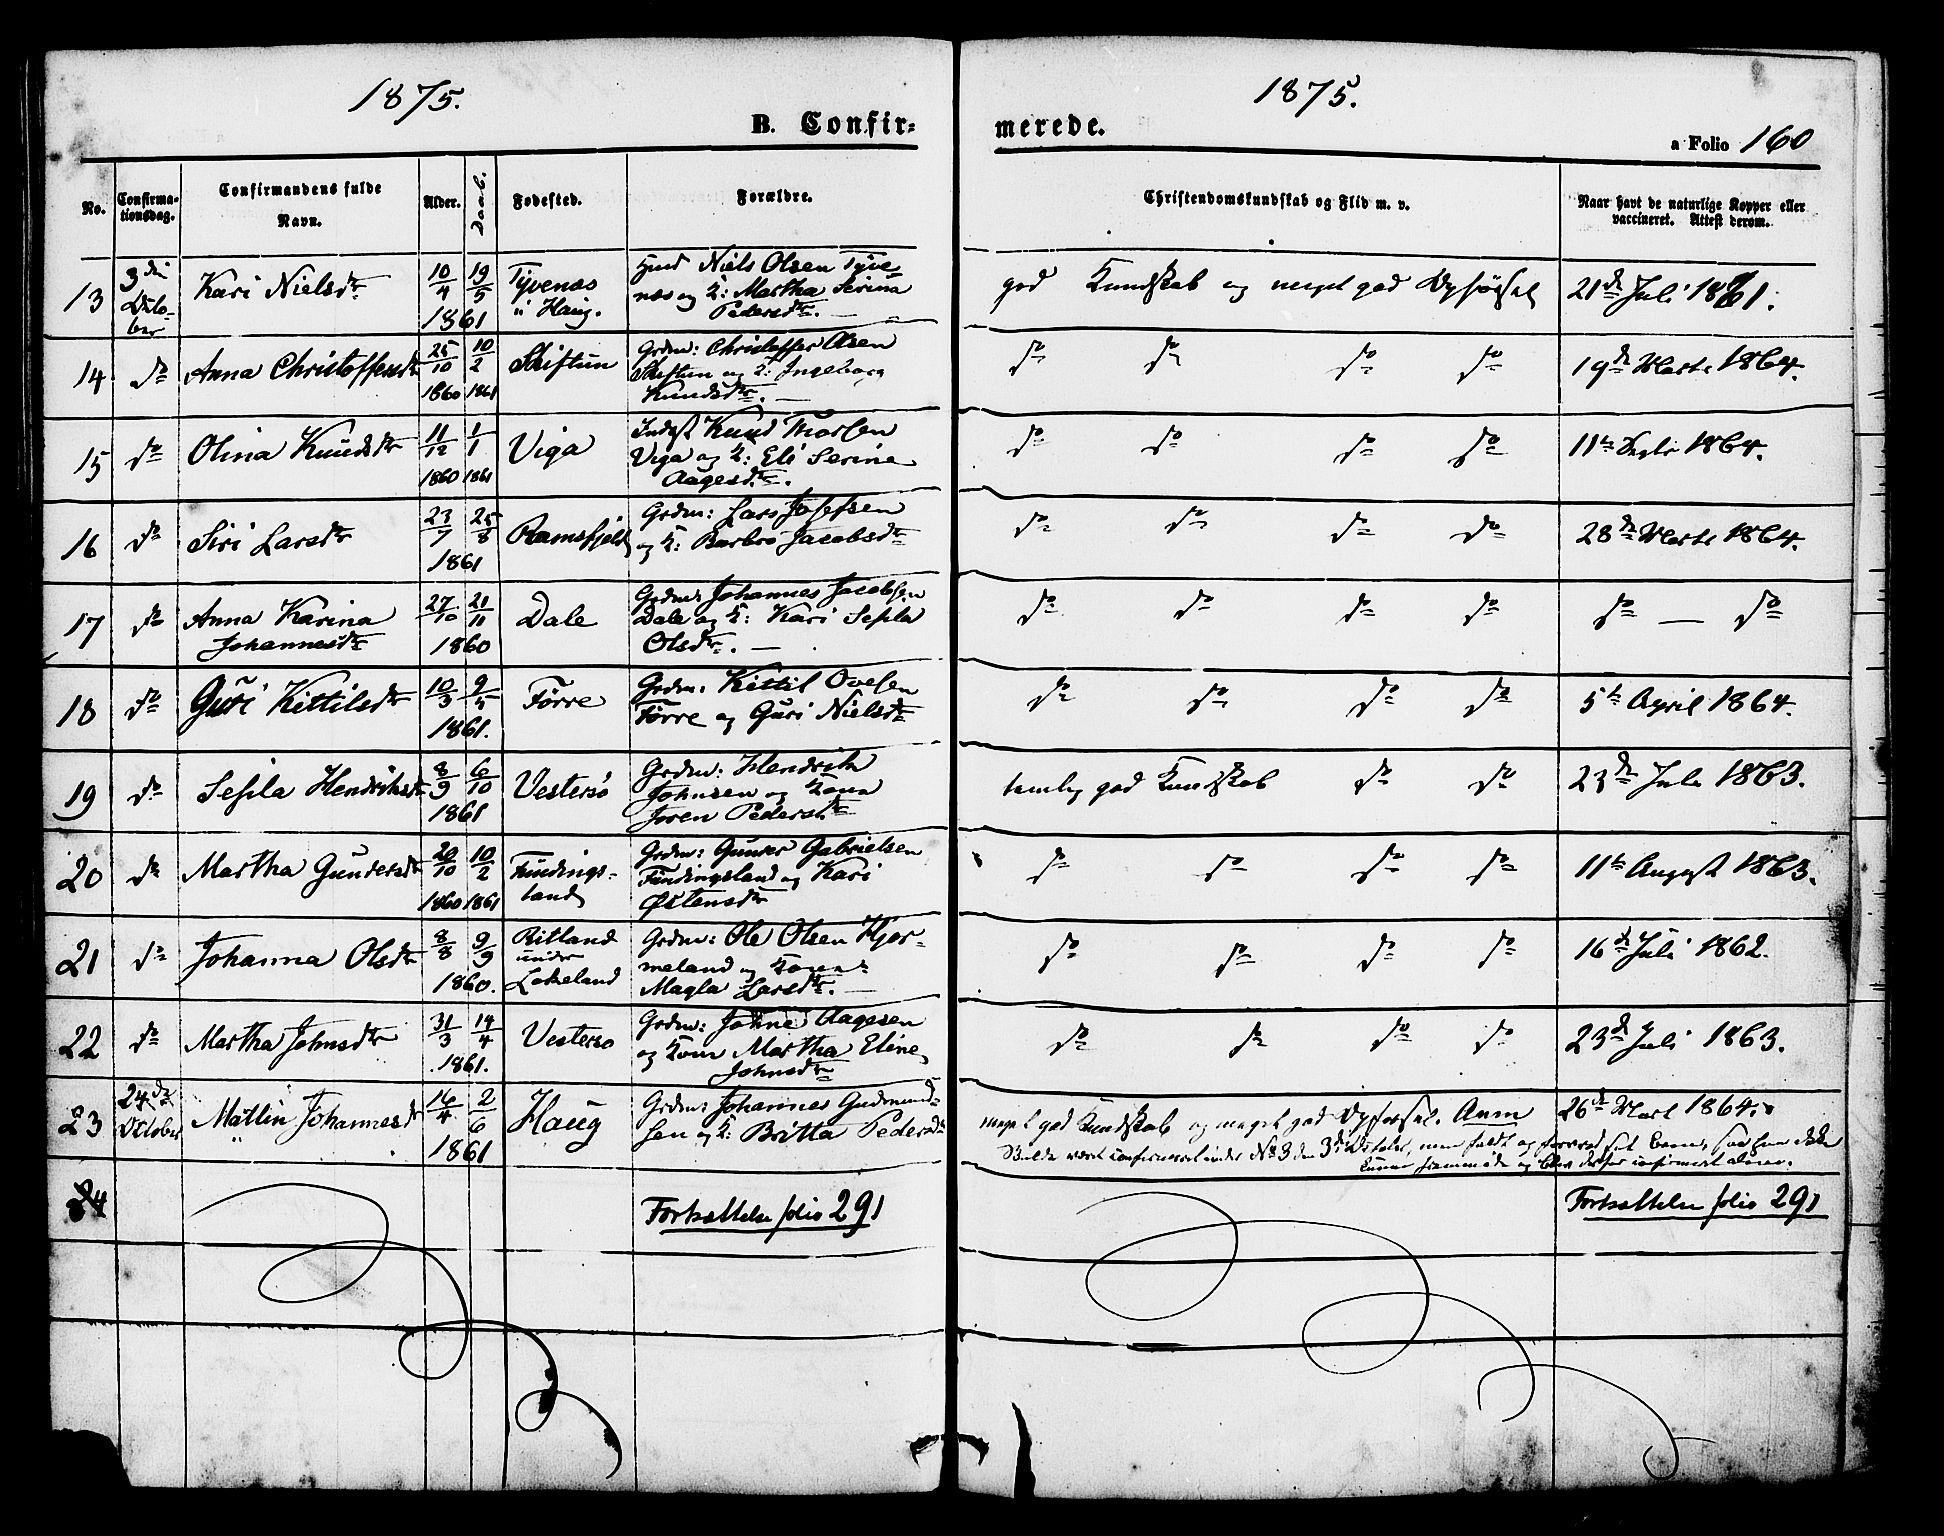 1875.
1875.
B. Confir=
merede.
a Folio 160
No.
Confirma-
tionsdag.
Confirmandens fulde
Navn.
Alder.
Daab.
Fødested.
Forældre.
Christendomskundskab og Flid m. v.
Naar havt de naturlige Kopper eller
vaccineret. Attest derom.
13
3die
Octo-
ber
Kari Nielsdtr
10/4 19/5
1861
Tyvenæs
u Haug.
Niels Olsen Tyve
næs og K: Martha Serina
Pedersdtr. —
god Kundskab og meget god Opførsel
21de Juli 1861.
14 do Anna Christoffersdtr
25/10 10/2
1860 1861
Skiftun
Grdm: Christoffer Olsen
Skiftun og K: Ingeborg
Knudsdtr. —
do do do do
19de Marts 1864.
15 do Olina Knudsdtr
11/12 1/1
1860 1861
Viga
Indst Knud Thorsen
Viga og K: Eli Serina
Aagesdtr.
do do do do
11te Septr 1864.
16 do Siri Larsdtr
23/7 25/8
1861
Ramsfjeld
Grdm: Lars Josefsen
og K: Barbro Jacobsdtr
do do do do
28de Marts 1864.
17 do Anna Karina
Johannesdtr
27/10 21/11
1860
Dale
Grdm: Johannes Jacobsen
Dale og K: Kari Sesila
Olsdtr. —
do do do do
do — do
18 do Guri Kittilsdtr
10/3 9/5
1861.
Førre
Grdm: Kittil Ovesen
Førre og Guri Nielsdtr
do do do do
5te April 1864.
19 do Sesila Hendriksdtr
8/9 6/10
1861
Vestersø
Grdm: Hendrik
Johnsen og Kona
Joren Pedersdtr
temlig god Kundskab do do
23de Juli 1863.
20 do Martha Gundersdtr
20/10 10/2
1860 1861
Fundings-
land
Grdm: Gunder Gabrielsen
Fundingsland og Kari
Østensdtr
do do do do
11te August 1863.
21 do Johanna Olsdtr
8/8 9/9
1860.
Ritland
under
Lekeland
Grdm: Ole Olsen Hjor-
meland og Kona
Magla Larsdtr. —
do do do do
16de Juli 1862.
22 do Martha Johnsdtr
31/3 14/4
1861.
Vestersø
Grdm: John Aagesen
og Kona Martha Eline
Johnsdtr
do do do do
23de Juli 1863.
23
24de
October
Matlin Johannesdtr
16/4 2/6
1861
Haug
Grdm: Johannes Gudmund-
sen og K: Britta Pedersdtr
meget god Kundskab og meget god Opførsel. Anm
26de Mart 1864.
Skulde været confirmeret under No 3 den 3die October, men faldt og forvred sit Been, saa hun ikke
kunne fremmøde og blev derfor confirmeret alene.
24
Fortsættelse folio 291
Fortsættelse folio 291